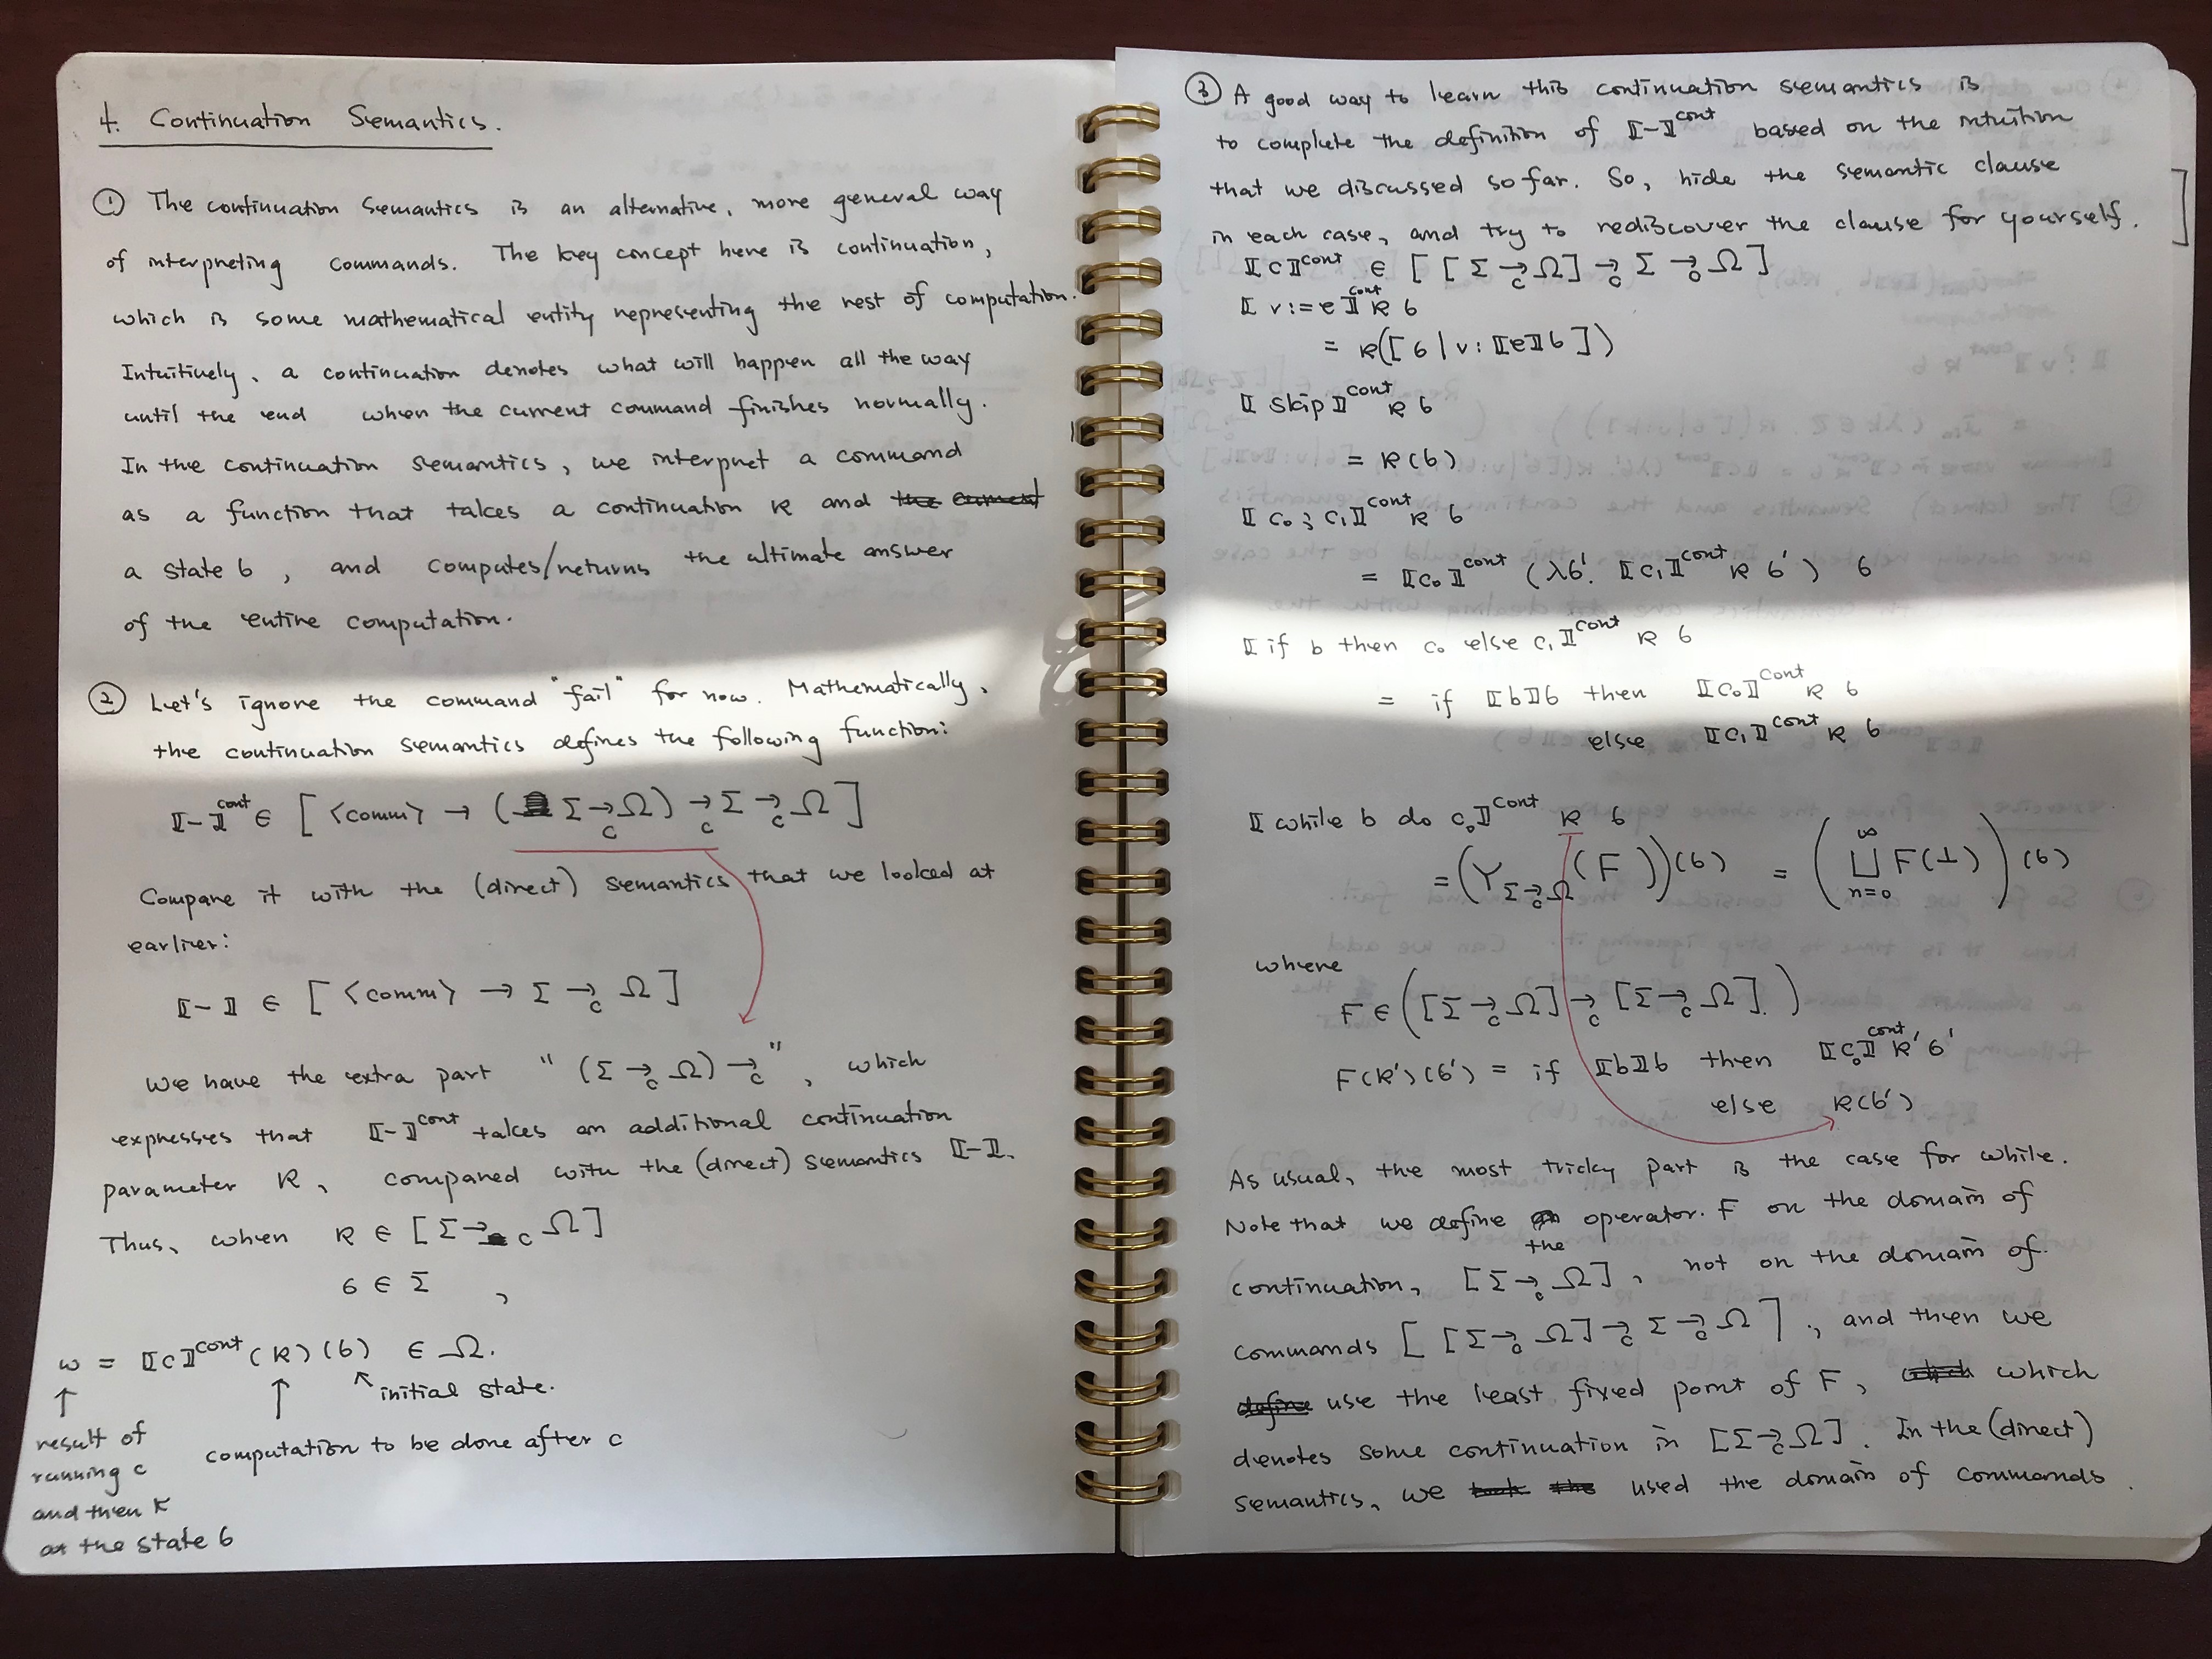 4. Continuation Semantics.
① The continuation semantics is an alternative, more general way
of interpreting commands. The key concept here is continuation,
which is some mathematical entity representing the rest of computation.
Intuitively, a continuation denotes what will happen all the way
until the end when the current command finishes normally.
In the continuation semantics, we interpret a command
as a function that takes a continuation κ and the current
a state σ, and computes/returns the ultimate answer
of the entire computation.
② Let's ignore the command "fail" for now. Mathematically,
the continuation semantics defines the following function:
⟦-⟧^cont ∈ [ <comm> → ( Σ →_c Ω) →_c Σ →_c Ω ]
Compare it with the (direct) semantics that we looked at
earlier:
⟦-⟧ ∈ [ <comm> → Σ →_c Ω ]
We have the extra part " (Σ →_c Ω) →_c ", which
expresses that ⟦-⟧^cont takes an additional continuation
parameter κ, compared with the (direct) semantics ⟦-⟧.
Thus, when κ ∈ [Σ →_c Ω]
σ ∈ Σ ,
w = ⟦c⟧^cont (κ)(σ) ∈ Ω.
↑ ↑ ↖ initial state.
result of
running c
and then κ
at the state σ
computation to be done after c
③ A good way to learn this continuation semantics is
to complete the definition of ⟦-⟧^cont based on the intuition
that we discussed so far. So, hide the semantic clause
in each case, and try to rediscover the clause for yourself.
⟦c⟧^cont ∈ [ [ Σ →_c Ω] →_c Σ →_c Ω ]
⟦v:=e⟧^cont κ σ
= κ([σ | v: ⟦e⟧σ])
⟦skip⟧^cont κ σ
= κ(σ)
⟦c₀; c₁⟧^cont κ σ
= ⟦c₀⟧^cont (λσ'. ⟦c₁⟧^cont κ σ') σ
⟦if b then c₀ else c₁⟧^cont κ σ
= if ⟦b⟧σ then ⟦c₀⟧^cont κ σ
else ⟦c₁⟧^cont κ σ
⟦while b do c₀⟧^cont κ σ
= (Y_{Σ →_c Ω} (F))(σ) = ( ⊔_{n=0}^∞ F(⊥) ) (σ)
where
F ∈ ([Σ →_c Ω] →_c [Σ →_c Ω])
F(κ')(σ') = if ⟦b⟧σ then ⟦c₀⟧^cont κ' σ'
else κ(σ')
As usual, the most tricky part is the case for while.
Note that we define an operator F on the domain of
the
continuation, [Σ →_c Ω], not on the domain of
commands [ [Σ →_c Ω] →_c Σ →_c Ω ], and then we
define use the least fixed point of F, which which
denotes some continuation in [Σ →_c Ω]. In the (direct)
semantics, we took the used the domain of commands.